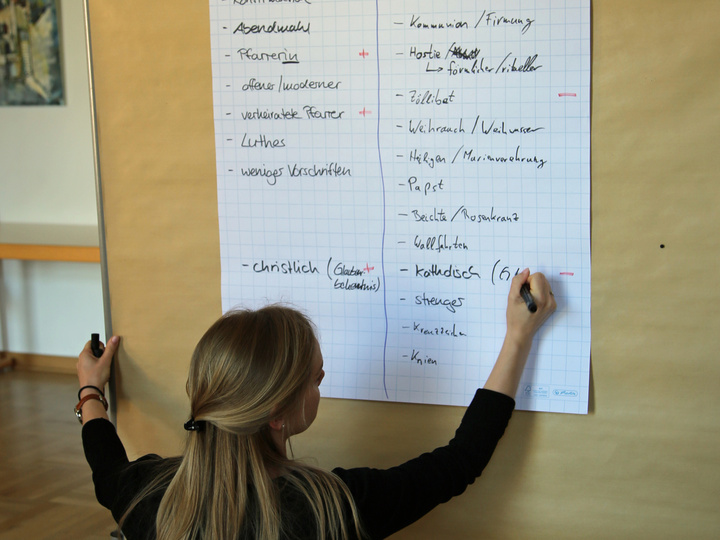 - Abendmahl
- Pfarrerin +
- offener/moderner
- verheiratete Pfarrer +
- Luther
- weniger Vorschriften
- christlich (Glauben- +
bekenntnis)
- Kommunion / Firmung
- Hostie /
↳ förmlicher/ritueller
- Zöllibat -
- Weihrauch / Weihwasser
- Heiligen / Marienverehrung
- Papst
- Beichte / Rosenkranz
- Wallfahrten
- katholisch (Gl -
- strenger
- Kreuzzeichen
- Knien